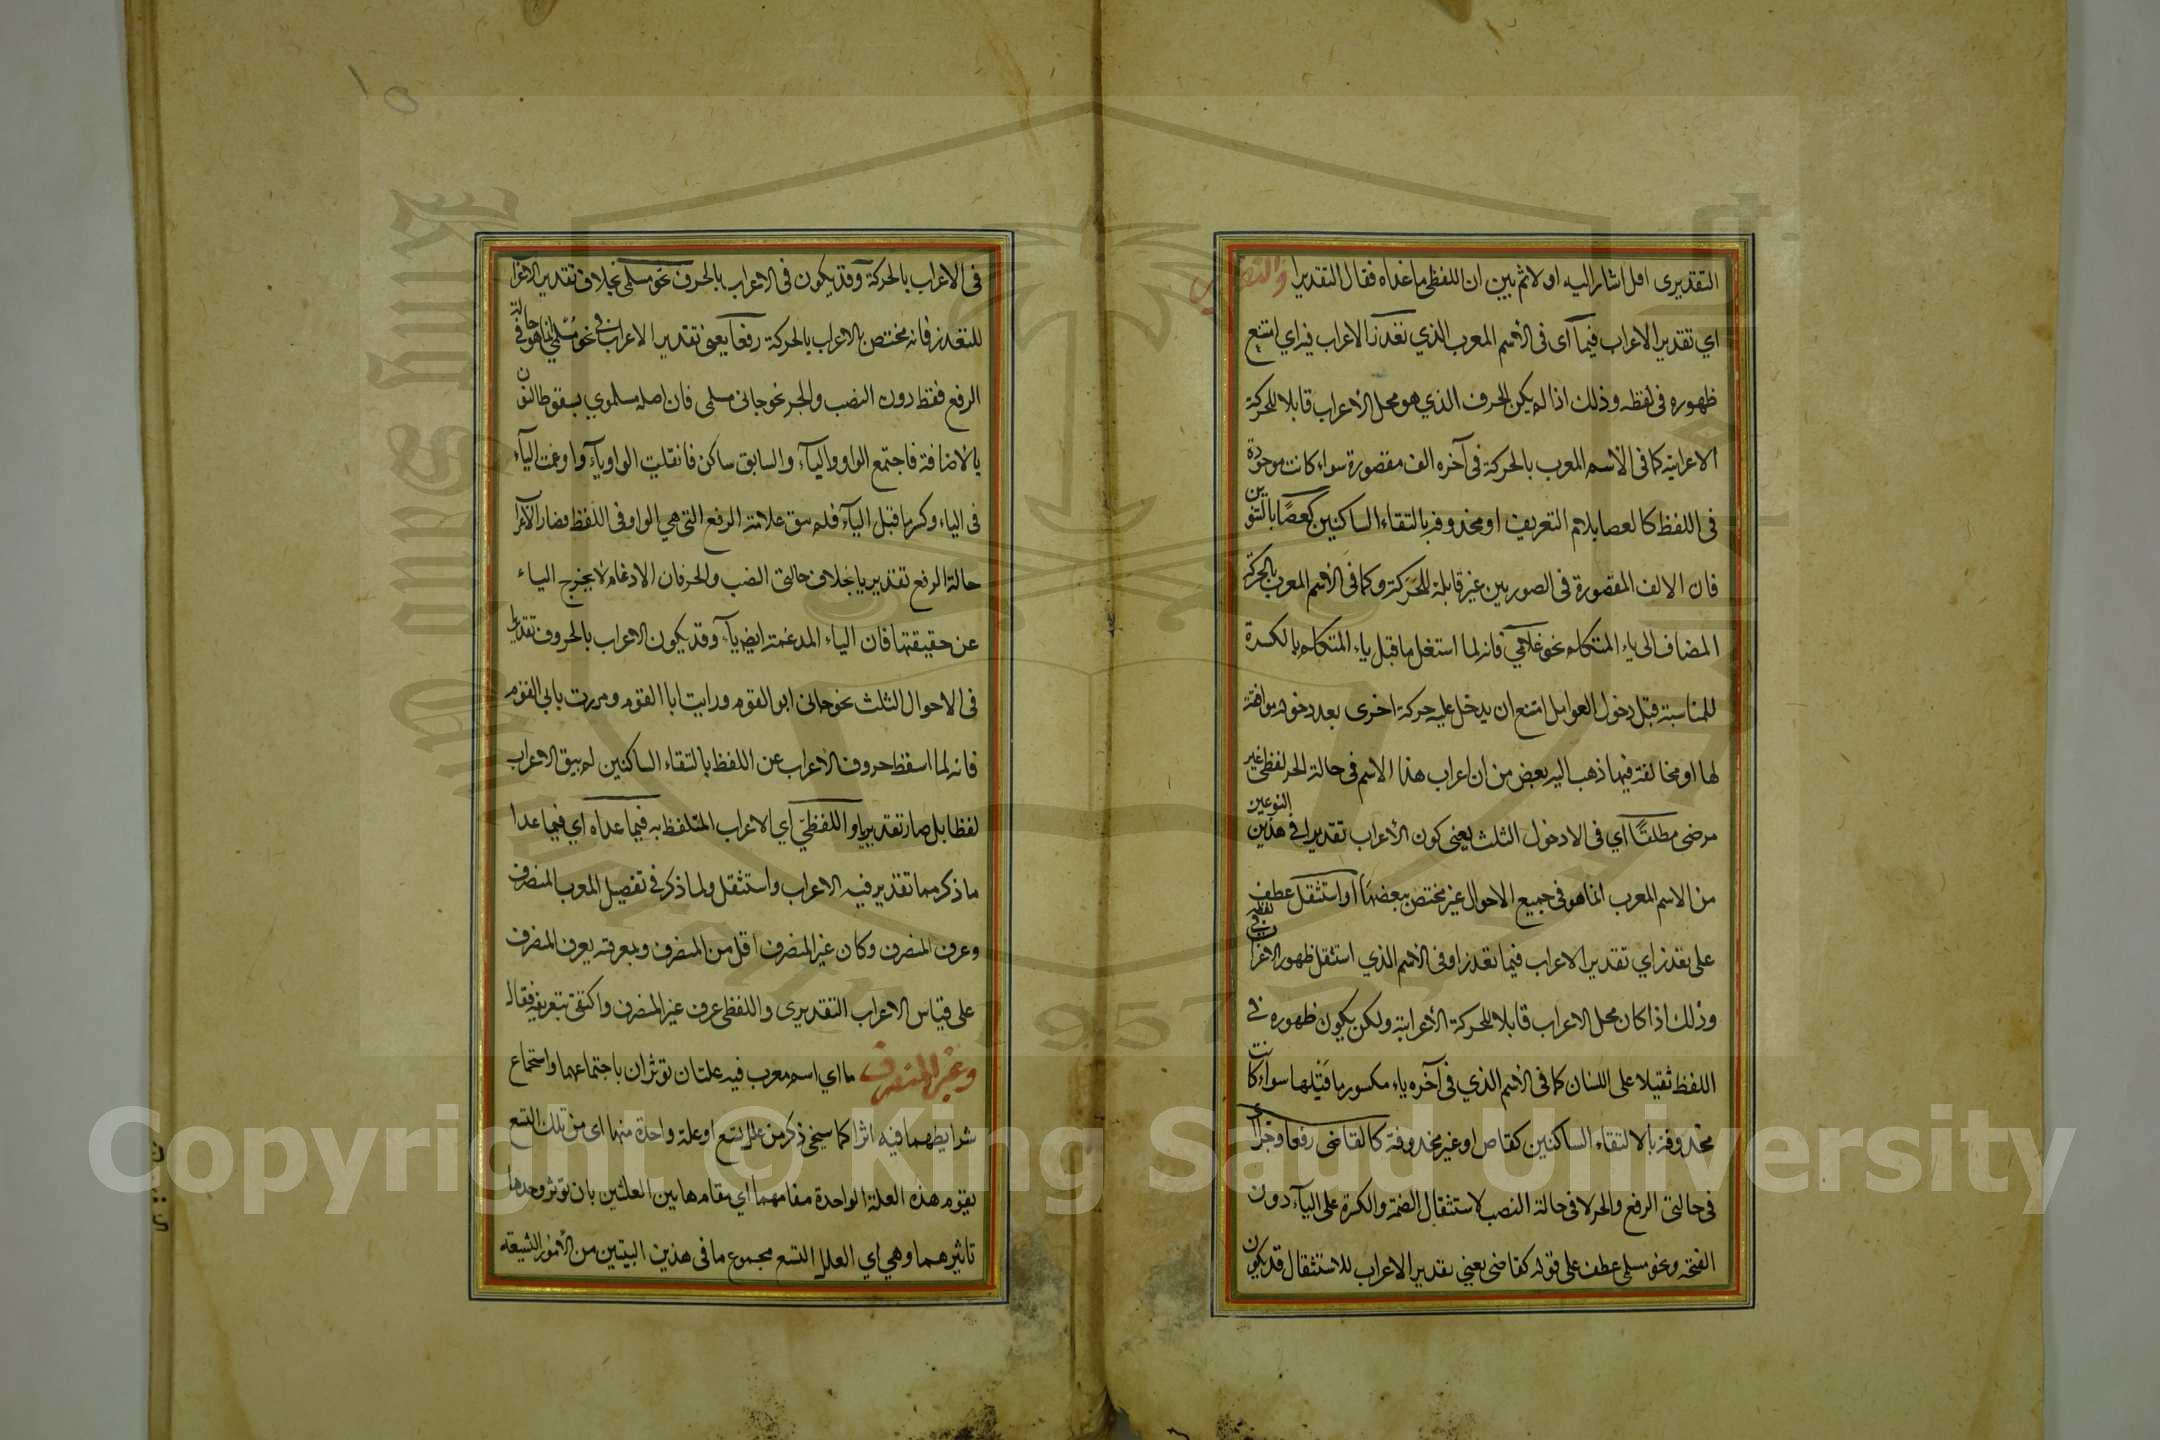 التقديرى اقل اشار اليه اولا ثم بين ان اللفظى ما عداه فقال التقدير
اي تقدير الاعراب فيما اى فى الاسم المعرب الذي تعذر الاعراب فيه اي امتنع
ظهوره فى لفظه وذلك اذا لم يكن الحرف الذي هو محل الاعراب قابلا للحركة
الاعرابية كما فى الاسم المعرب بالحركة فى آخره الف مقصورة سواء كانت موجودة
فى اللفظ كالعصا بلام التعريف او محذوفة بالتقاء الساكنين كعصًا بالتنوين
فان الالف المقصورة فى الصورتين غير قابلة للحركة وكما فى الاسم المعرب بالحركة
المضاف الى ياء المتكلم نحو غلامي فانه لما اشتغل ما قبل ياء المتكلم بالكسرة
للمناسبة قبل دخول العوامل امتنع ان يدخل عليه حركة اخرى بعد دخوله موافقة
لها او مخالفة فيما ذهب اليه بعض من ان اعراب هذا الاسم فى حالة الجر لفظى غير
مرضى مطلقًا اي فى الاحوال الثلث يعنى كون الاعراب تقديرا فى هذين النوعين
من الاسم المعرب انما هو فى جميع الاحوال غير مختص ببعضها او استثقل عطف
على تعذر اي تقدير الاعراب فيما تعذر او فى الاسم الذي استثقل ظهور الاعراب فى لفظه
وذلك اذا كان محل الاعراب قابلا للحركة الاعرابية ولكن يكون ظهوره فى
اللفظ ثقيلا على اللسان كما فى الاسم الذي فى آخره ياء مكسور ما قبلها سواء كانت
محذوفة بالالتقاء الساكنين كقاض او غير محذوفة كالقاضى رفعا وجرا اى
فى حالتى الرفع والجر لا فى حالة النصب لاستثقال الضمة والكسرة على الياء دون
الفتحة ونحو مسلمى عطف على قوله كقاضى يعني تقدير الاعراب للاستثقال قد يكون
فى الاعراب بالحركة وقد يكون فى الاعراب بالحرف نحو مسلمى بخلاف تقدير الاعراب
للتعذر فانه مختص بالاعراب بالحركة رفعا يعنى تقدير الاعراب فى نحو مسلمى انما هو فى حالة
الرفع فقط دون النصب والجر نحو جانى مسلمى فان اصله مسلموي بسقوط النون
بالاضافة فاجتمع الواو والياء والسابق ساكن فانقلبت الواو ياء وادغمت الياء
فى الياء وكسر ما قبل الياء فلم يبق علامة الرفع التى هي الواو فى اللفظ فصار الاعراب
حالة الرفع تقديريا بخلاف حالتى النصب والجر فان الادغام لا يخرج الياء
عن حقيقتها فان الياء المدغمة ايضا ياء وقد يكون الاعراب بالحروف تقديرا
فى الاحوال الثلث نحو جانى ابو القوم ورايت ابا القوم ومررت بابي القوم
فانه لما اسقط حروف الاعراب عن اللفظ بالتقاء الساكنين لم يبق الاعراب
لفظا بل صار تقديريا واللفظيّ اي الاعراب المتلفظ به فيما عداه اي فيما عدا
ما ذكر مما تقدير فيه الاعراب واستثقل ولما ذكر فى تفصيل المعرب المنصرف
وعرف المنصرف وكان غير المنصرف اقل من المنصرف وبمعرفته يعرف المنصرف
على قياس الاعراب التقديرى واللفظى عرف غير المنصرف واكتفى بتعريفه فقال
وغير المنصرف ما اي اسم معرب فيه علتان تؤثران باجتماعهما واستجماع
شرايطهما فيه اثرا كما سيجى ذكر من علل تسع او علة واحدة منها اى من تلك التسع
يقوم هذه العلة الواحدة مقامهما اي مقام هاتين العلتين بان تؤثر وحدها
تاثيرهما وهي اي العلل التسع مجموع ما فى هذين البيتين من الامور التسعة
Copyright © King Saud University
King Saud University
1957